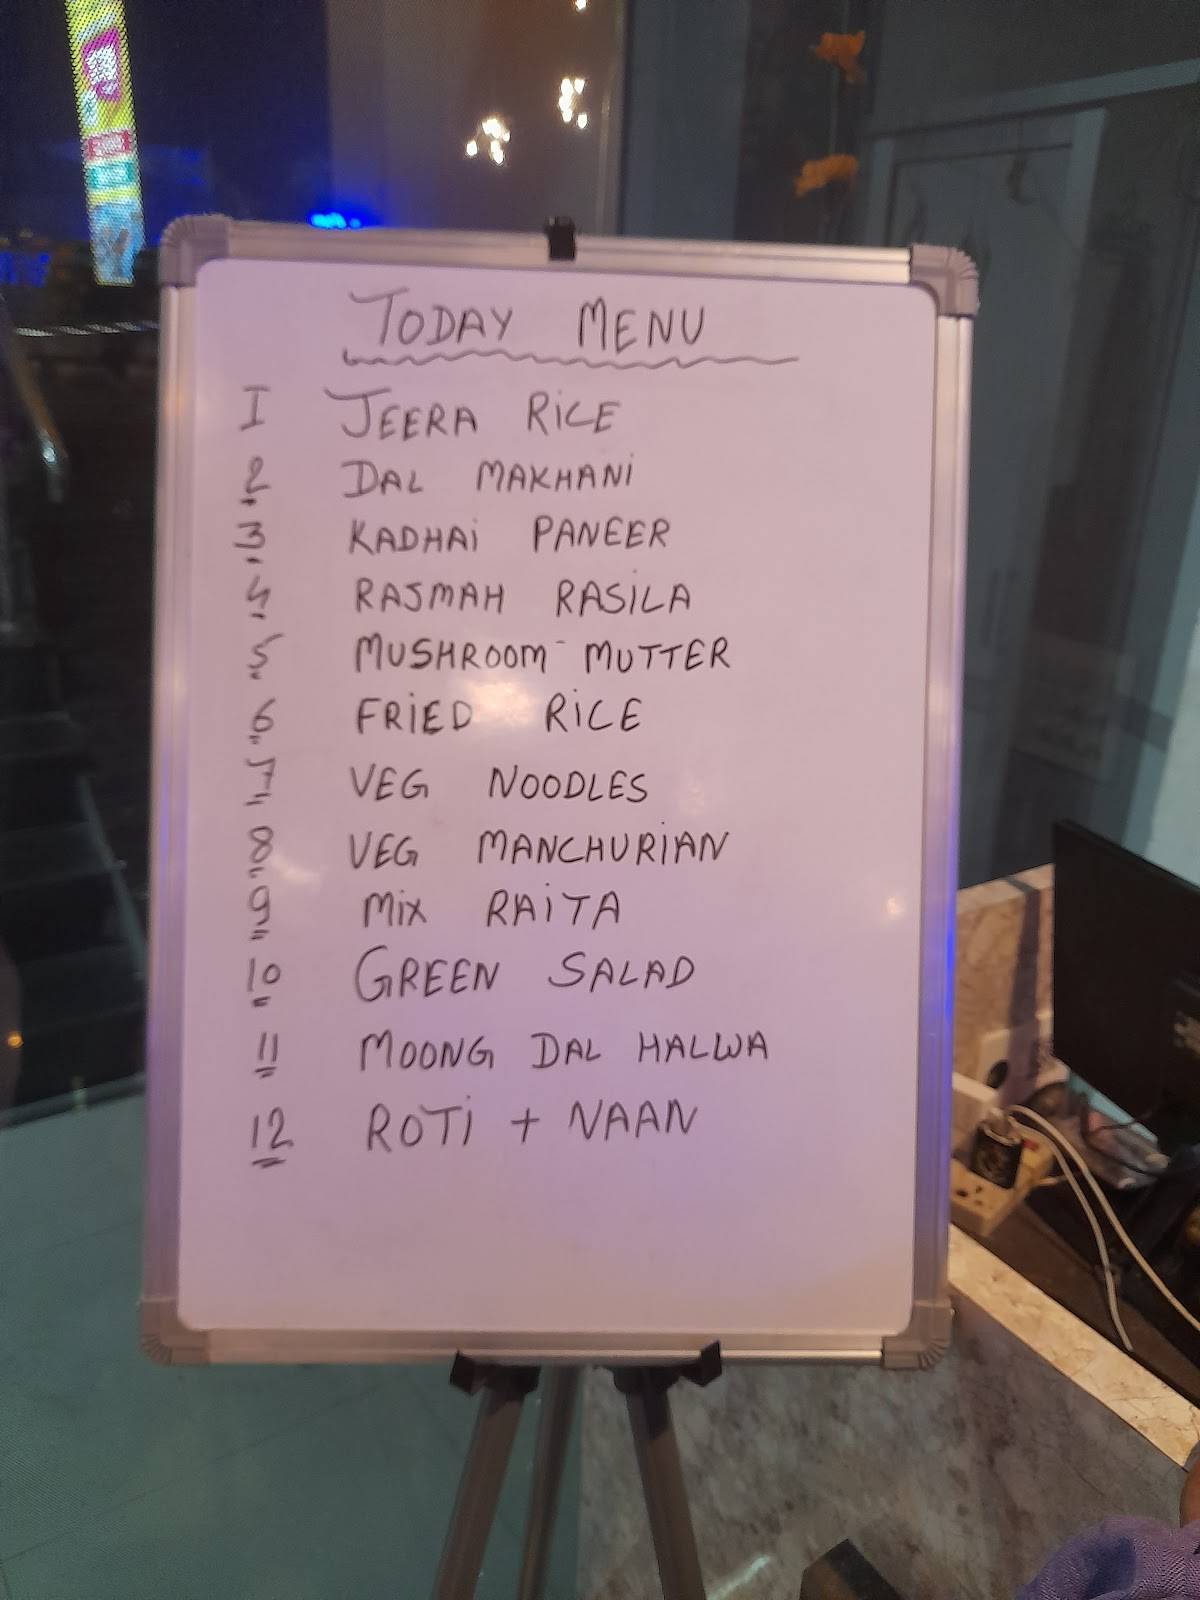 TODAY MENU
I JEERA RICE
2 DAL MAKHANI
3 KADHAI PANEER
4 RAJMAH RASILA
5 MUSHROOM - MUTTER
6 FRIED RICE
7 VEG NOODLES
8 VEG MANCHURIAN
9 MIX RAITA
10 GREEN SALAD
11 MOONG DAL HALWA
12 ROTI + NAAN